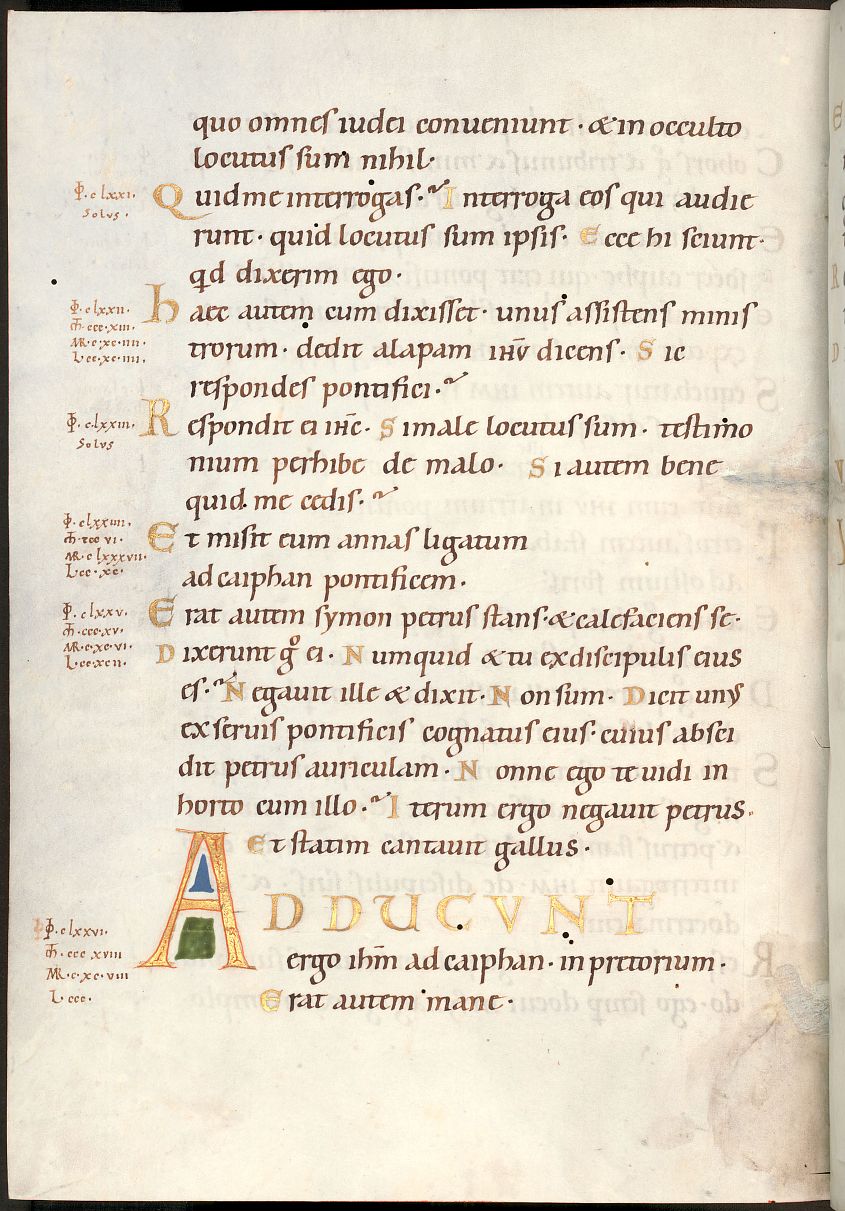 quo omnes iudei conueniunt · & in occulto
locutus sum nihil·
Φ · clxxi·
Solus ·
Quid me interrogas · Interroga eos qui audie
runt · quid locutus sum ipsis · Ecce hi sciunt·
qd dixerim ego ·
Φ · clxxii·
ccc · xiii·
MR · c · xc · iiii·
L · cc · xc · iiii·
haec autem cum dixisset · unus assistens minis
trorum · dedit alapam ihu dicens · Sic
respondes pontifici ·
Φ · clxxiii·
Solus
Respondit ei ihc · Si male locutus sum · testimo
nium perhibe de malo · Si autem bene
quid me cedis ·
Φ · clxxiiii·
MR · clxxxvii·
L cc · xc ·
Et misit eum annas ligatum
ad caiphan pontificem ·
Φ · clxxv·
ccc · xv·
MR · c · xc · vi·
L · cc · xc ii·
Erat autem symon petrus stans · & calefaciens se ·
Dixerunt g° ei · Numquid & tu ex discipulis eius
es · Negauit ille & dixit · Non sum · Dicit unus
ex seruis pontificis cognatus eius · cuius absci
dit petrus auriculam · Nonne ego te uidi in
horto cum illo · Iterum ergo negauit petrus ·
Et statim cantauit gallus ·
Φ · clxxvi·
ccc · xviii
MR · c · xc · viii
L ccc ·
ADDUCVNT
ergo ihm ad caiphan · in pretorium ·
Erat autem mane ·